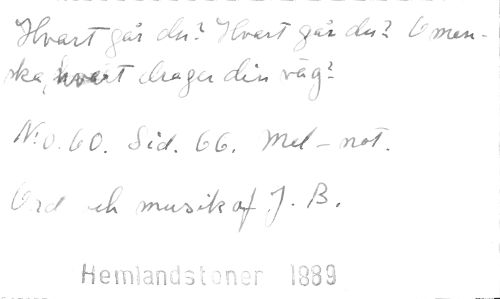 Hvart går du? Hvart går du? O men-
ska, hvart drager din väg?
No. 60. Sid. 66. Mel-not.
Ord och musik af J. B.
Hemlandstoner 1889